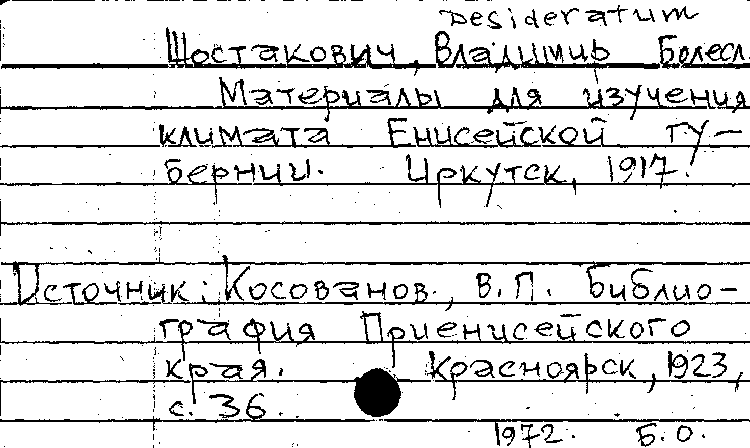 Desideratum
Шостакович, Владимир Болесл.
Материалы для изучения
климата Енисейской гу-
бернии. Иркутск, 1917.
Источник: Косованов, В.П. Библио-
графия Приенисейского
края. Красноярск, 1923,
с. 36.
1972. Б.О.